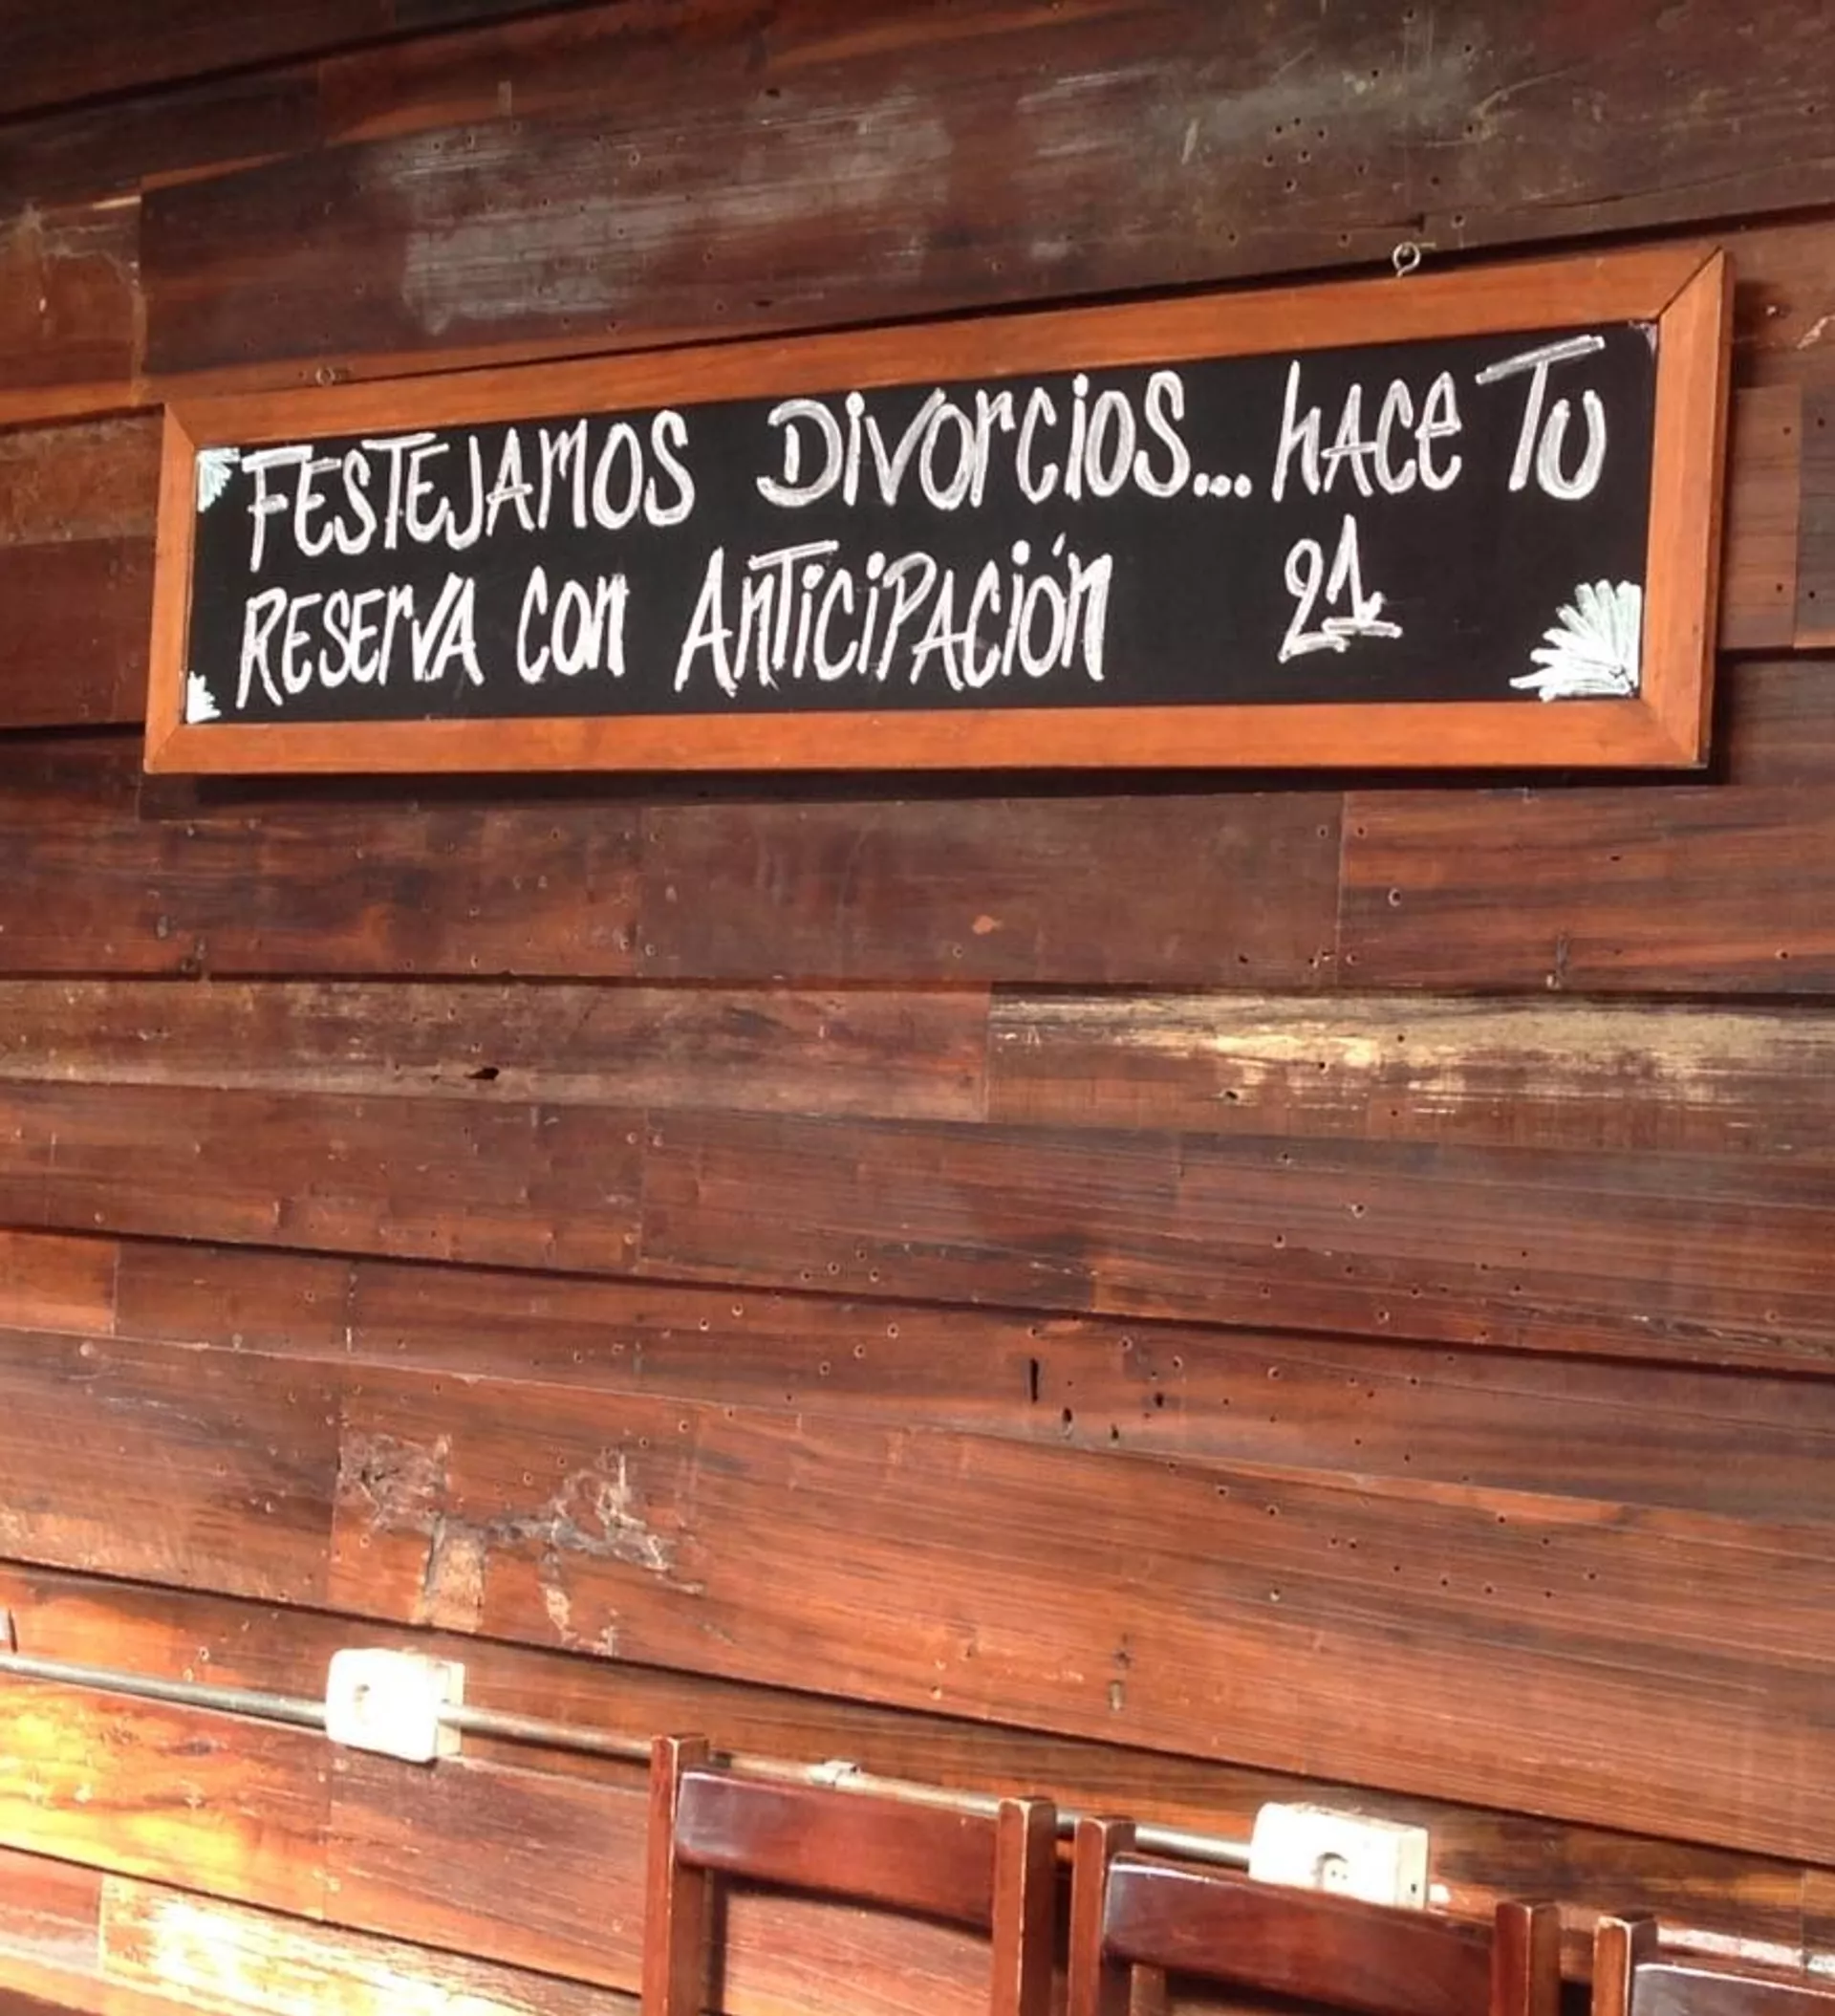 FESTEJAMOS DIVORCIOS... HACE TU
RESERVA CON ANTICIPACIÓN 21